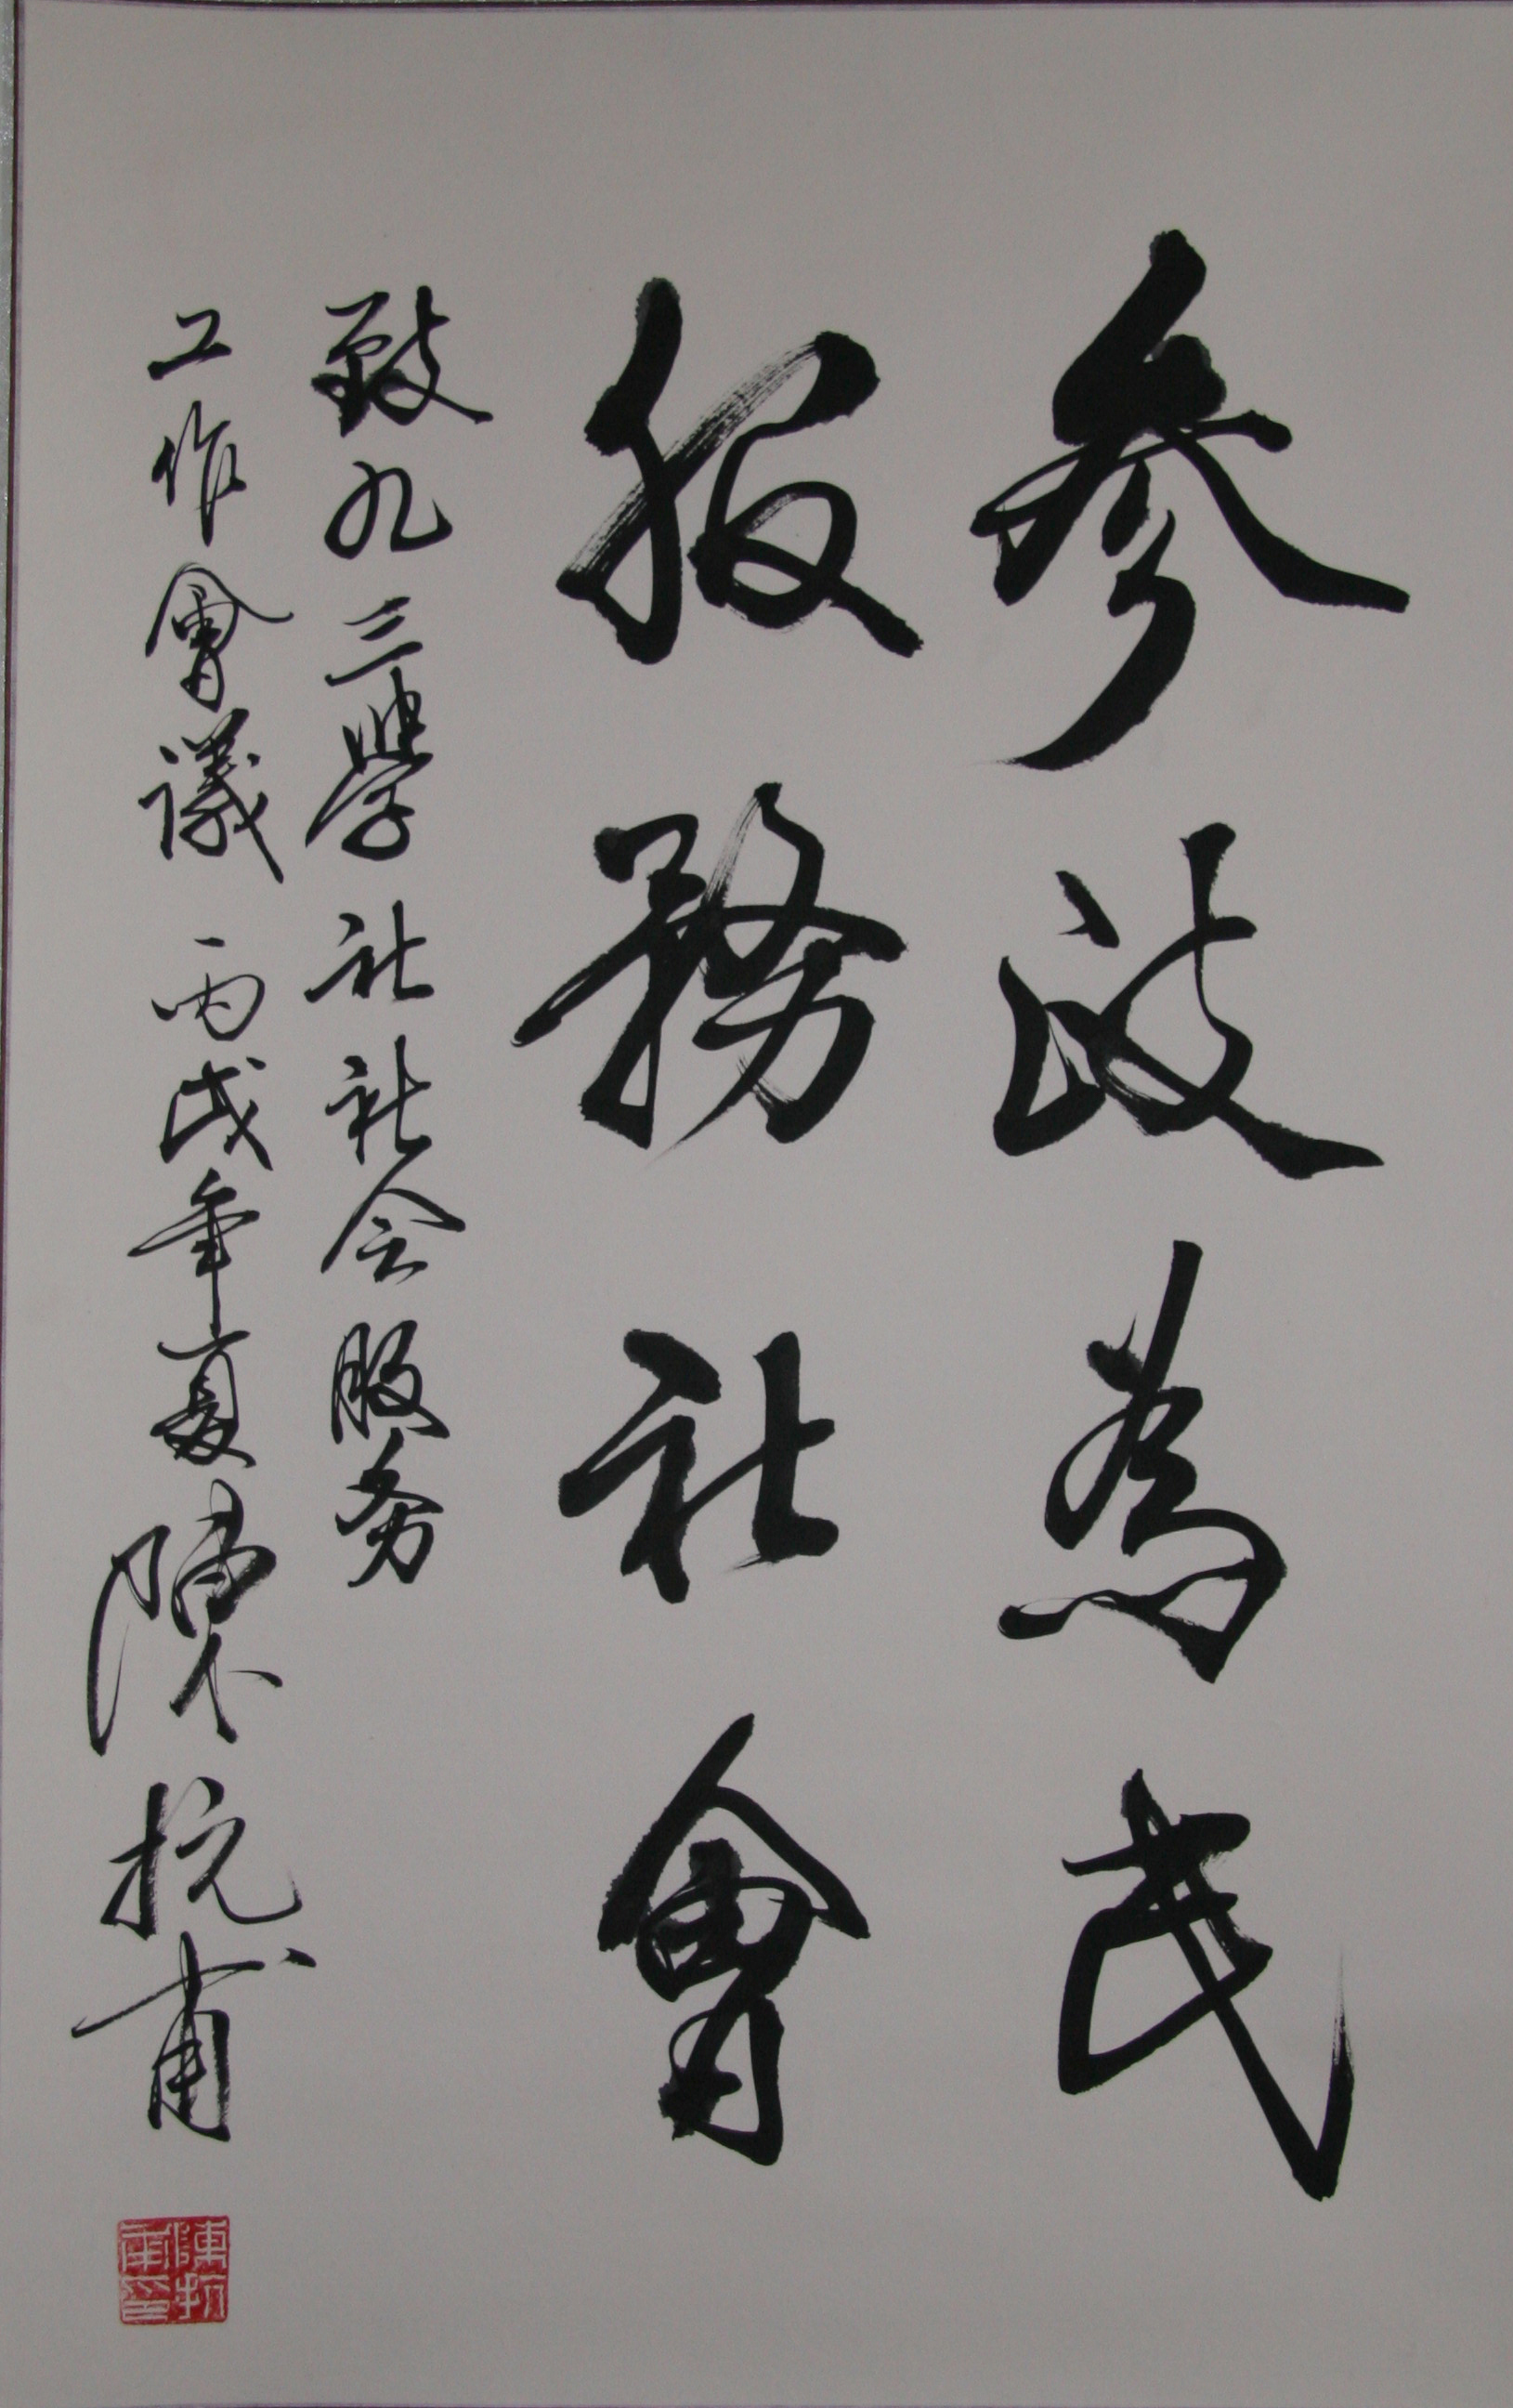 參政為民
服務社會
致九三學社社会服务
工作會議 丙戌年夏 陳抗甫
陳抗甫印